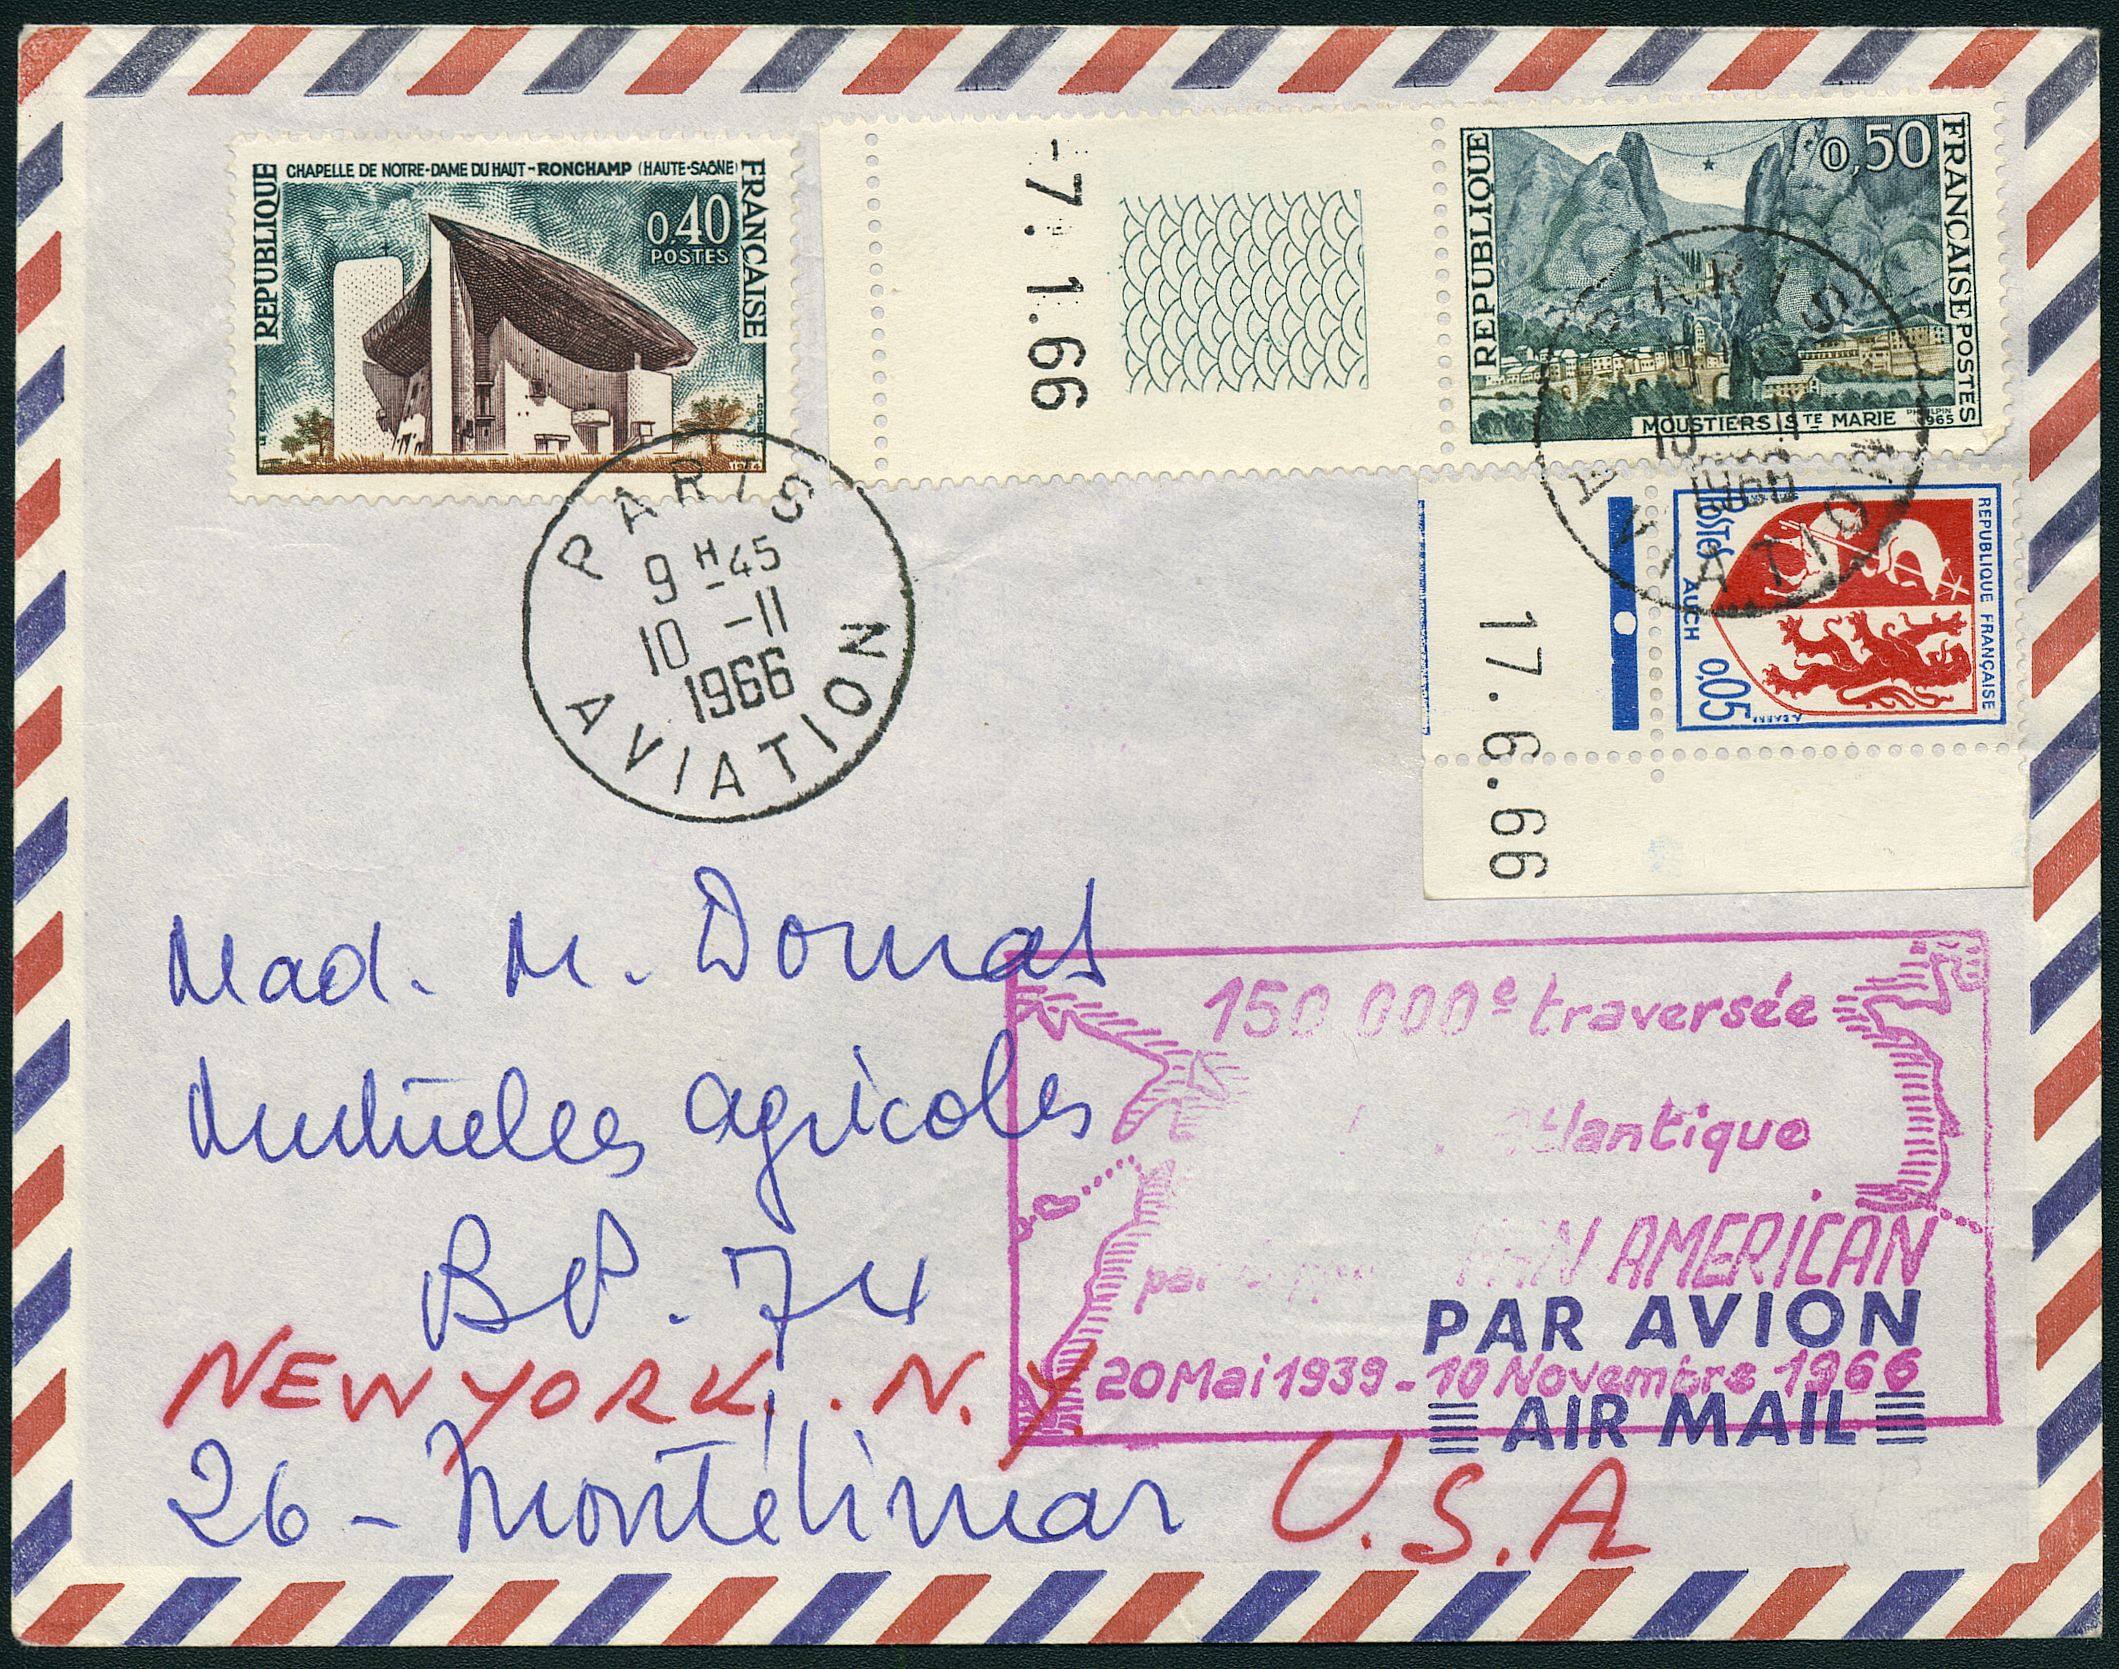 CHAPELLE DE NOTRE-DAME DU HAUT - RONCHAMP (HAUTE-SAÔNE)
REPUBLIQUE
FRANÇAISE
0,40
POSTES
1964
-7.1.66
REPUBLIQUE
FRANÇAISE
POSTES
0,50
MOUSTIERS STE MARIE
1965
PARIS
10 -11
1966
AVIATION
PARIS
9H-45
10 -11
1966
AVIATION
17.6.66
REPUBLIQUE FRANÇAISE
POSTES
AUCH
0,05
Mad. M. Domas
Mutuelles agricoles
BP. 74
NEW YORK. N.Y.
26 - Montélimar
U.S.A
150 000e traversée
Atlantique
par
PAN AMERICAN
20 Mai 1939 - 10 Novembre 1966
PAR AVION
AIR MAIL